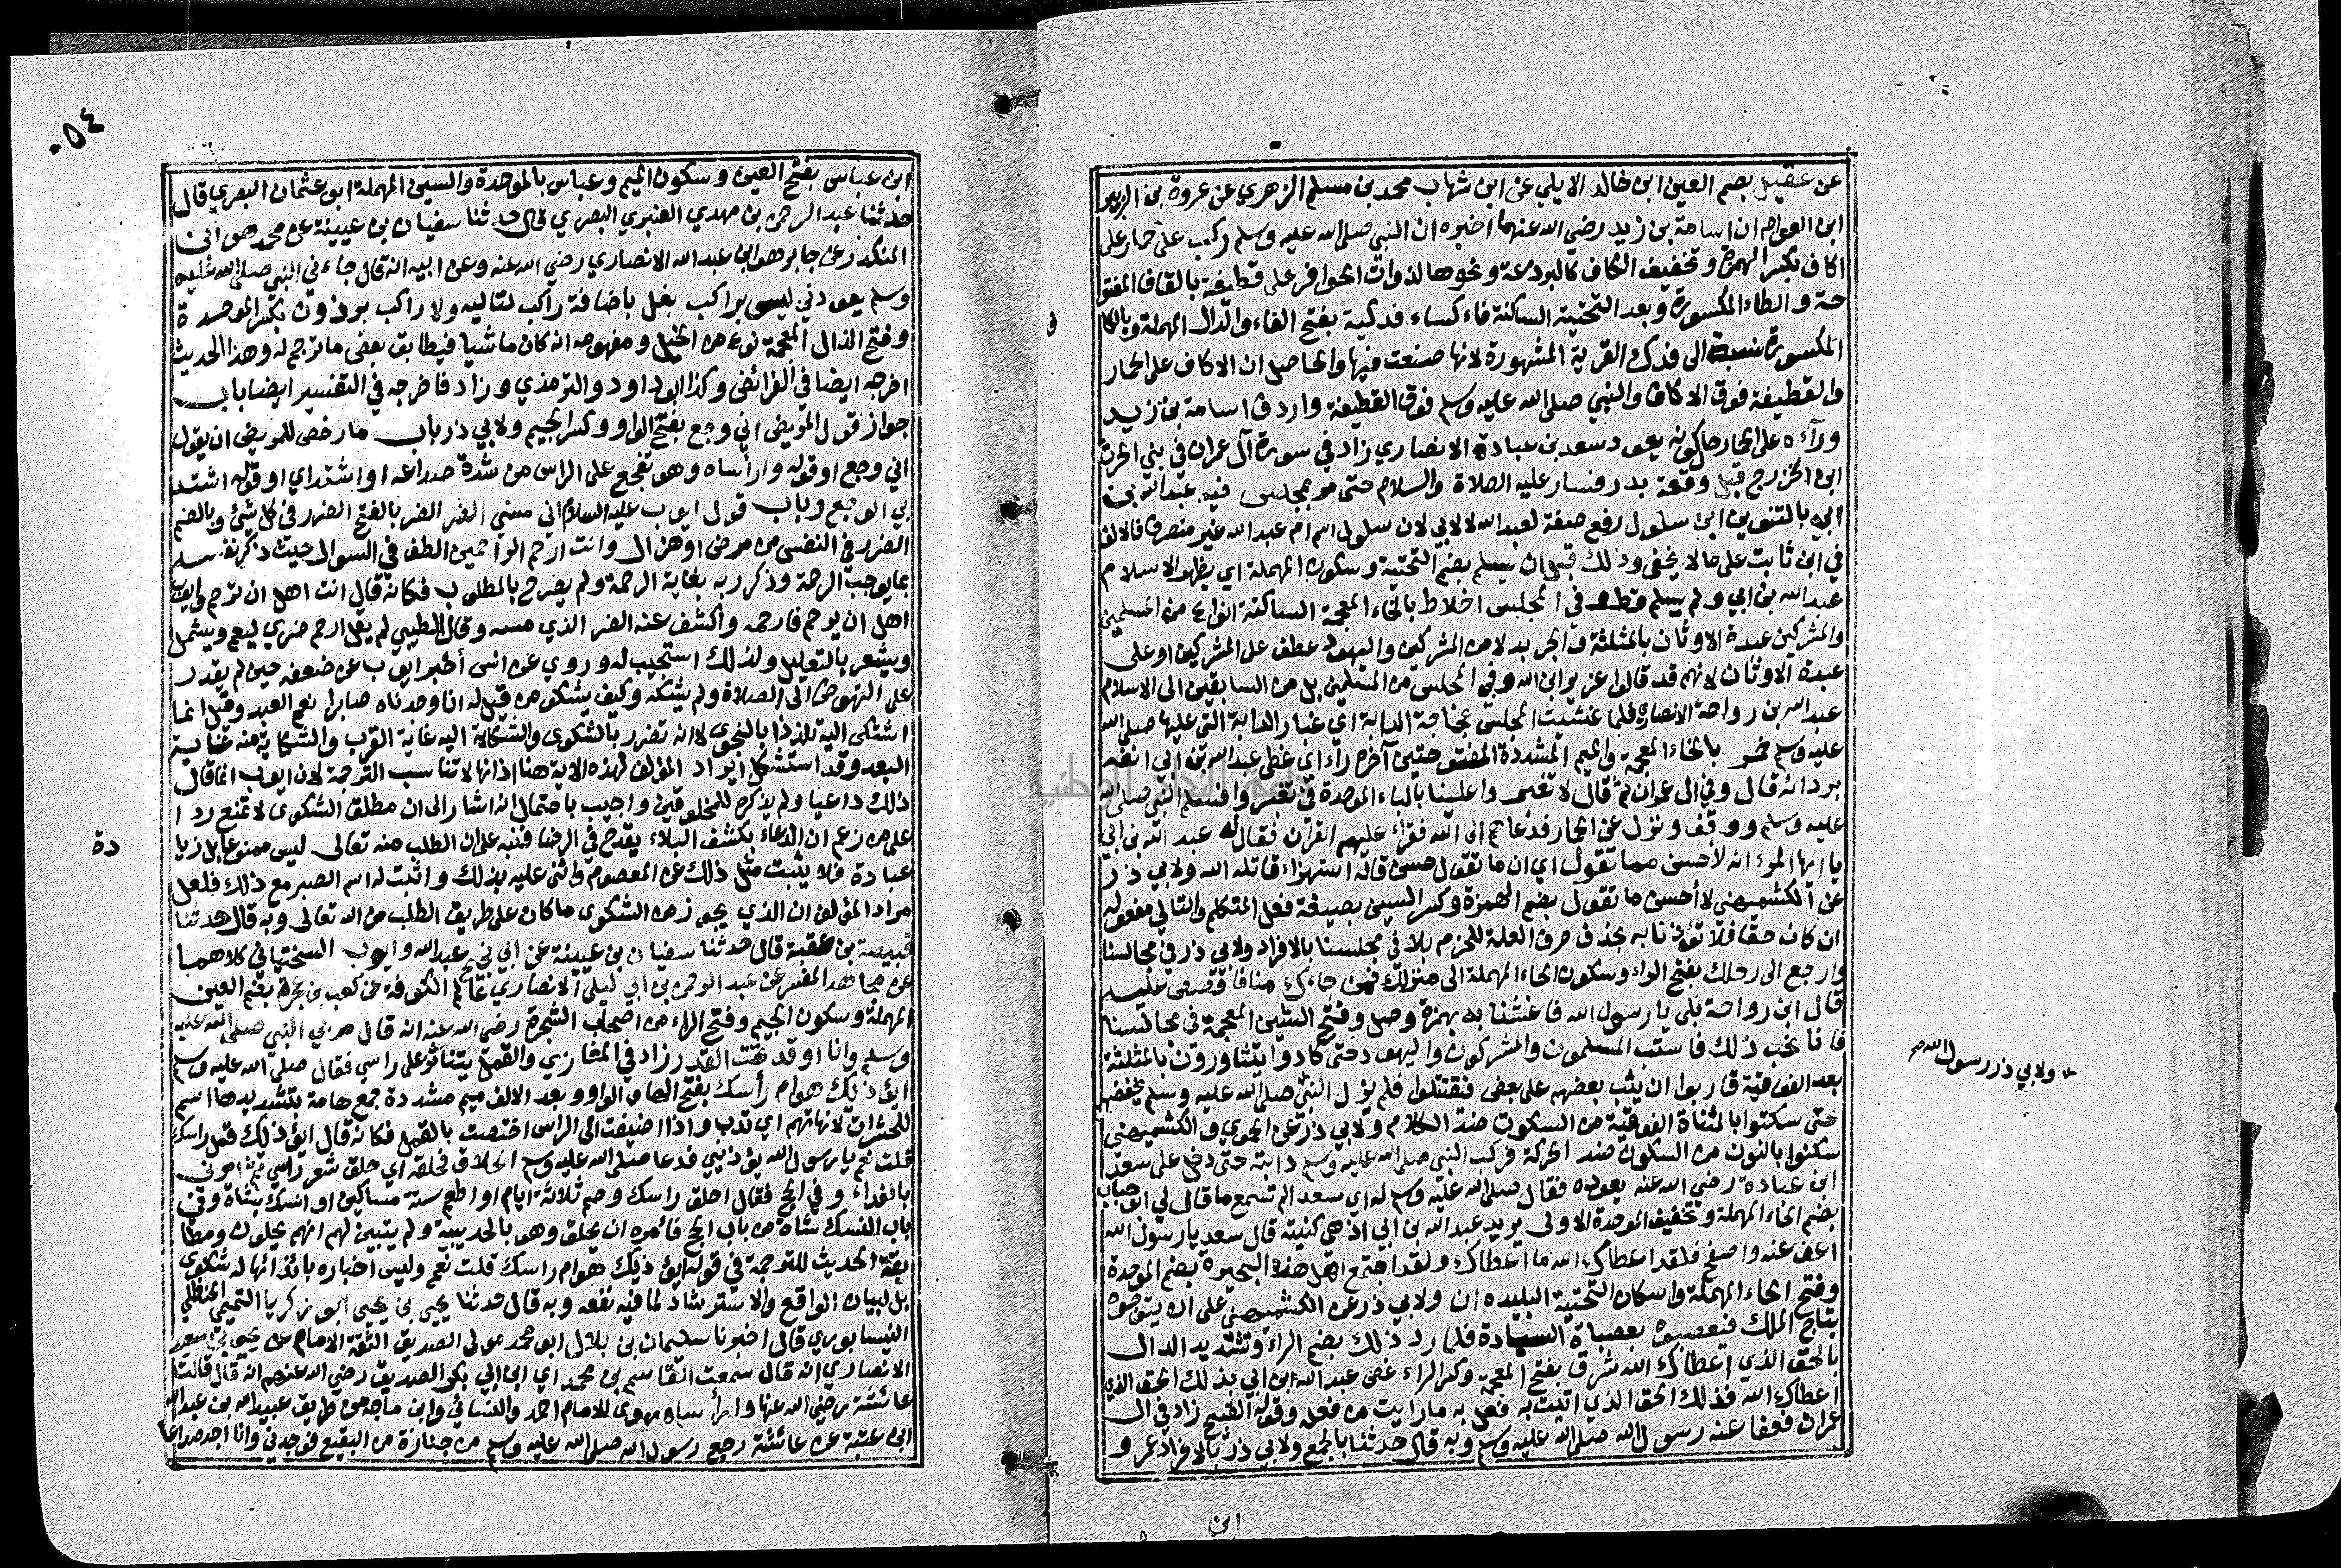 عن عقيل بضم العين ابن خالد الايلي عن ابن شهاب محمد بن مسلم الزهري عن عروة بن الزبير
ابن العوام ان اسامة بن زيد رضي الله عنهما اخبره ان النبي صلى الله عليه وسلم ركب على حمار على
اكاف بكسر الهمزة وتخفيف الكاف كالبردعة ونحوها لذوات الحوافر على قطيفة بالقاف المفتو
حة والطاء المكسورة وبعد التحتية الساكنة فاء كساء فدكية بفتح الفاء والدال المهملة وبالكا
ف
المكسورة نسبة الى فدك القرية المشهورة لانها صنعت فيها والحاصل ان الاكاف على الحمار
والقطيفة فوق الاكاف والنبي صلى الله عليه وسلم فوق القطيفة واردف اسامة بن زيد
ورآءه على الحمار حال كونه يعود سعد بن عبادة الانصاري زاد في سورة آل عمران في بني الحرث
ابن الخزرج قبل وقعة بدر فسار عليه الصلاة والسلام حتى مر بمجلس فيه عبد الله بن
ابي بالتنوين ابن سلول رفع صفة لعبد الله لا لابي لان سلول اسم ام عبد الله غير منصرف فالالف
في ابن ثابت على ما لا يخفى وذلك قبل ان يسلم بضم التحتية وسكون المهملة اي يظهر الاسلام
عبد الله بن ابي ولم يسلم قط وفي المجلس اخلاط بالخاء المعجمة الساكنة انواع من المسلمين
والمشركين عبدة الاوثان بالمثلثة والجر بدلا من المشركين واليهود عطف على المشركين او على
عبدة الاوثان لانهم قد قالوا عزير ابن الله وفي المجلس من المسلمين بل من السابقين الى الاسلام
عبد الله بن رواحة الانصاري فلما غشيت المجلس عجاجة الدابة اي غبار الدابة التي عليها صلى الله
عليه وسلم خمر بالخاء المعجمة والميم المشددة المفتوحتين آخره راء اي غطى عبد الله بن ابي انفه
بردائه قال وفي ال عمران ثم قال لا تغبروا علينا بالباء الموحدة في تغبروا فسلم النبي صلى الله
عليه وسلم ووقف ونزل عن الحمار فدعاهم الى الله فقرأ عليهم القرآن فقال له عبد الله بن ابي
يا ايها المرء انه لا احسن مما تقول اي ان ما تقول حسن قاله استهزاء قاتله الله ولابي ذر
عن الكشميهني لا أحسن ما تقول بضم الهمزة وكسر السين بصيغة فعل المتكلم والتالي مفعوله
ان كان حقا فلا تؤذنا به بحذف حرف العلة للجزم بلا في مجلسنا بالافراد ولابي ذر في مجالسنا
وارجع الى رحلك بفتح الراء وسكون الحاء المهملة الى منزلك فمن جاءك منا فاقصص عليه
قال ابن رواحة بلى يا رسول الله فاغشنا به بهمزة وصل وفتح الشين المعجمة في مجالسنا
ولابي ذر رسول الله
فانا نحب ذلك فاستب المسلمون والمشركون واليهود حتى كادوا يتثاورون بالمثلثة
بعد الفوقية قاربوا ان يثب بعضهم على بعض فيقتتلوا فلم يزل النبي صلى الله عليه وسلم يخفضهم
حتى سكتوا بالمثناة الفوقية من السكوت ضد الكلام ولابي ذر عن الحموي والكشميهني
سكنوا بالنون من السكون ضد الحركة فركب النبي صلى الله عليه وسلم دابته حتى دخل على سعد
ابن عبادة رضي الله عنه يعوده فقال صلى الله عليه وسلم له اي سعد الم تسمع ما قال لي ابو حباب
بضم الحاء المهملة وتخفيف الموحدة الاولى يريد عبد الله بن ابي اذ هي كنيته قال سعد يا رسول الله
اعف عنه واصفح فلقد اعطاك الله ما اعطاك ولقد اجتمع اهل هذه البحيرة بضم الموحدة
وفتح الحاء المهملة واسكان التحتية البليده ان ولابي ذر عن الكشميهني على ان يتوجوه
بتاج الملك فيعصبوه بعصابة السيادة فلما رد ذلك بضم الراء وتشديد الدال
بالحق الذي اعطاك الله شرق بفتح المعجمة وكسر الراء غص عبد الله ابن ابي بذلك الحق الذي
اعطاك الله فذلك الحق الذي اتيت به فعل به ما رايت من فعله وقوله القبيح زاد في ال
عمران فعفا عنه رسول الله صلى الله عليه وسلم وبه قال حدثنا بالجمع ولابي ذر بالافراد عمرو
ابن
٠٥٤
ابن عباس بفتح العين وسكون الميم وعباس بالموحدة والسين المهملة ابو عثمان البصري قال
حدثنا عبد الرحمن بن مهدي العنبري البصري قال حدثنا سفيان بن عيينة عن محمد هو ابن
المنكدر عن جابر هو ابن عبد الله الانصاري رضي الله عنه وعن ابيه انه قال جاءني النبي صلى الله عليه
وسلم يعودني ليس براكب بغل باضافة راكب لتاليه ولا راكب برذون بكسر الموحدة
وفتح الذال المعجمة نوع من الخيل ومفهومه انه كان ماشيا فيطابق بعض ما ترجم له وهذا الحديث
اخرجه ايضا في الفرائض وكذا ابو داود والترمذي وزاد فاخرجه في التفسير ايضا باب
جواز قول المريض اني وجع بفتح الواو وكسر الجيم ولابي ذر باب ما رخص للمريض ان يقول
اني وجع او قوله وارأساه وهو تفجع على الراس من شدة صداعه او اشتد اي او قوله اشتد
بي الوجع وباب قول ايوب عليه السلام اني مسني الضر الضر بالفتح الضرر في كل شيء وبالضم
الضرر في النفس من مرض او هزال وانت ارحم الراحمين الطف في السوال حيث ذكر نفسه
بما يوجب الرحمة وذكر ربه بغاية الرحمة ولم يصرح بالمطلوب فكانه قال انت اهل ان ترحم وايوب
اهل ان يرحم فارحمه واكشف عنه الضر الذي مسه وقال الطيبي لم يقل ارحم ضري ليعم ويشمل
ويشعر بالتعليل ولذلك استجيب له وروي عن انس أخبر ايوب عن ضعفه حين لم يقدر
على النهوض الى الصلاة ولم يشتكه وكيف يشكو من قيل له انا وجدناه صابرا نعم العبد وقيل انما
اشتكى اليه تلذذا بالنجوى لا انه تضرر بالشكوى والشكاية اليه غاية القرب والشكاية منه غاية
البعد وقد استشكل ايراد المؤلف لهذه الاية هنا اذ انها لا تناسب الترجمة لان ايوب انما قال
ذلك داعيا ولم يذكره للمخلوقين واجيب باحتمال انه اشار الى ان مطلق الشكوى لا تمنع ردا
على من زعم ان الدعاء بكشف البلاء يقدح في الرضا فنبه على ان الطلب منه تعالى ليس ممنوعا بل زيا
دة
عبادة فلا يثبت مثل ذلك عن المعصوم واثنى عليه بذلك واثبت له اسم الصبر مع ذلك فلعل
مراد المؤلف ان الذي يجوز من الشكوى ما كان على طريق الطلب من الله تعالى وبه قال حدثنا
قبيصة بن عقبة قال حدثنا سفيان بن عيينة عن ابي نجيح عبد الله وايوب السختياني كلاهما
عن مجاهد المفسر عن عبد الرحمن بن ابي ليلى الانصاري عالم الكوفة عن كعب بن عجرة بضم العين
المهملة وسكون الجيم وفتح الراء من اصحاب الشجرة رضي الله عنه انه قال مر بي النبي صلى الله عليه
وسلم وانا اوقد تحت القدر زاد في المغازي والقمل يتناثر على راسي فقال صلى الله عليه وسلم
ايؤذيك هوام رأسك بفتح الها والواو وبعد الالف ميم مشددة جمع هامة بتشديدها اسم
للحشرات لانها تهم اي تدب واذا اضيفت الى الراس اختصت بالقمل فكانه قال ايؤذيك قمل راسك
قلت نعم يا رسول الله يؤذيني فدعا صلى الله عليه وسلم الحلاق فحلقه اي حلق شعر راسي ثم امرني
بالفداء وفي الحج فقال احلق راسك وصم ثلاثة ايام او اطعم ستة مساكين او انسك بشاة وفي
باب النسك شاة من باب الحج فامره ان يحلق وهو بالحديبية ولم يتبين لهم انهم يحلون ومطا
بقة الحديث للترجمة في قوله ايؤذيك هوام راسك قلت نعم وليس اخباره باذائها له شكوى
بل لبيان الواقع والاسترشاد لما فيه نفعه وبه قال حدثنا يحيى بن يحيى ابو زكريا التميمي الحنظلي
النيسابوري قال اخبرنا سليمان بن بلال ابو محمد مولى الصديق الثقة الامام عن يحيى بن سعيد
الانصاري انه قال سمعت القاسم بن محمد اي ابن ابي بكر الصديق رضي الله عنهم انه قال قالت
عائشة رضي الله عنها وارأساه روي للامام احمد والنسائي وابن ماجه من طريق عبيد الله بن عبد الله
ابن عتبة عن عائشة رجع رسول الله صلى الله عليه وسلم من جنازة من البقيع فوجدني وانا اجد صداعا